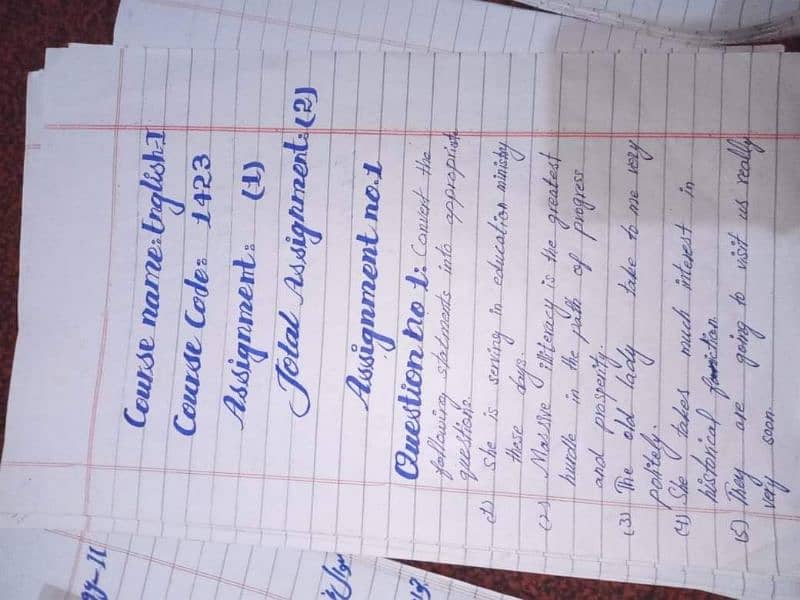 Course name: English-I
Course Code: 1423
Assignment: (1)
Total Assignment: (2)
Assignment no.1
Question no 1: Convert the
following statments into appropriate
questions.
(1) She is serving in education ministry
these days.
(2) Massive illiteracy is the greatest
hurdle in the path of progress
and prosperity.
(3) The old lady take to me very
politely.
(4) She takes much interest in
historical fiction.
(5) They are going to visit us really
very soon.